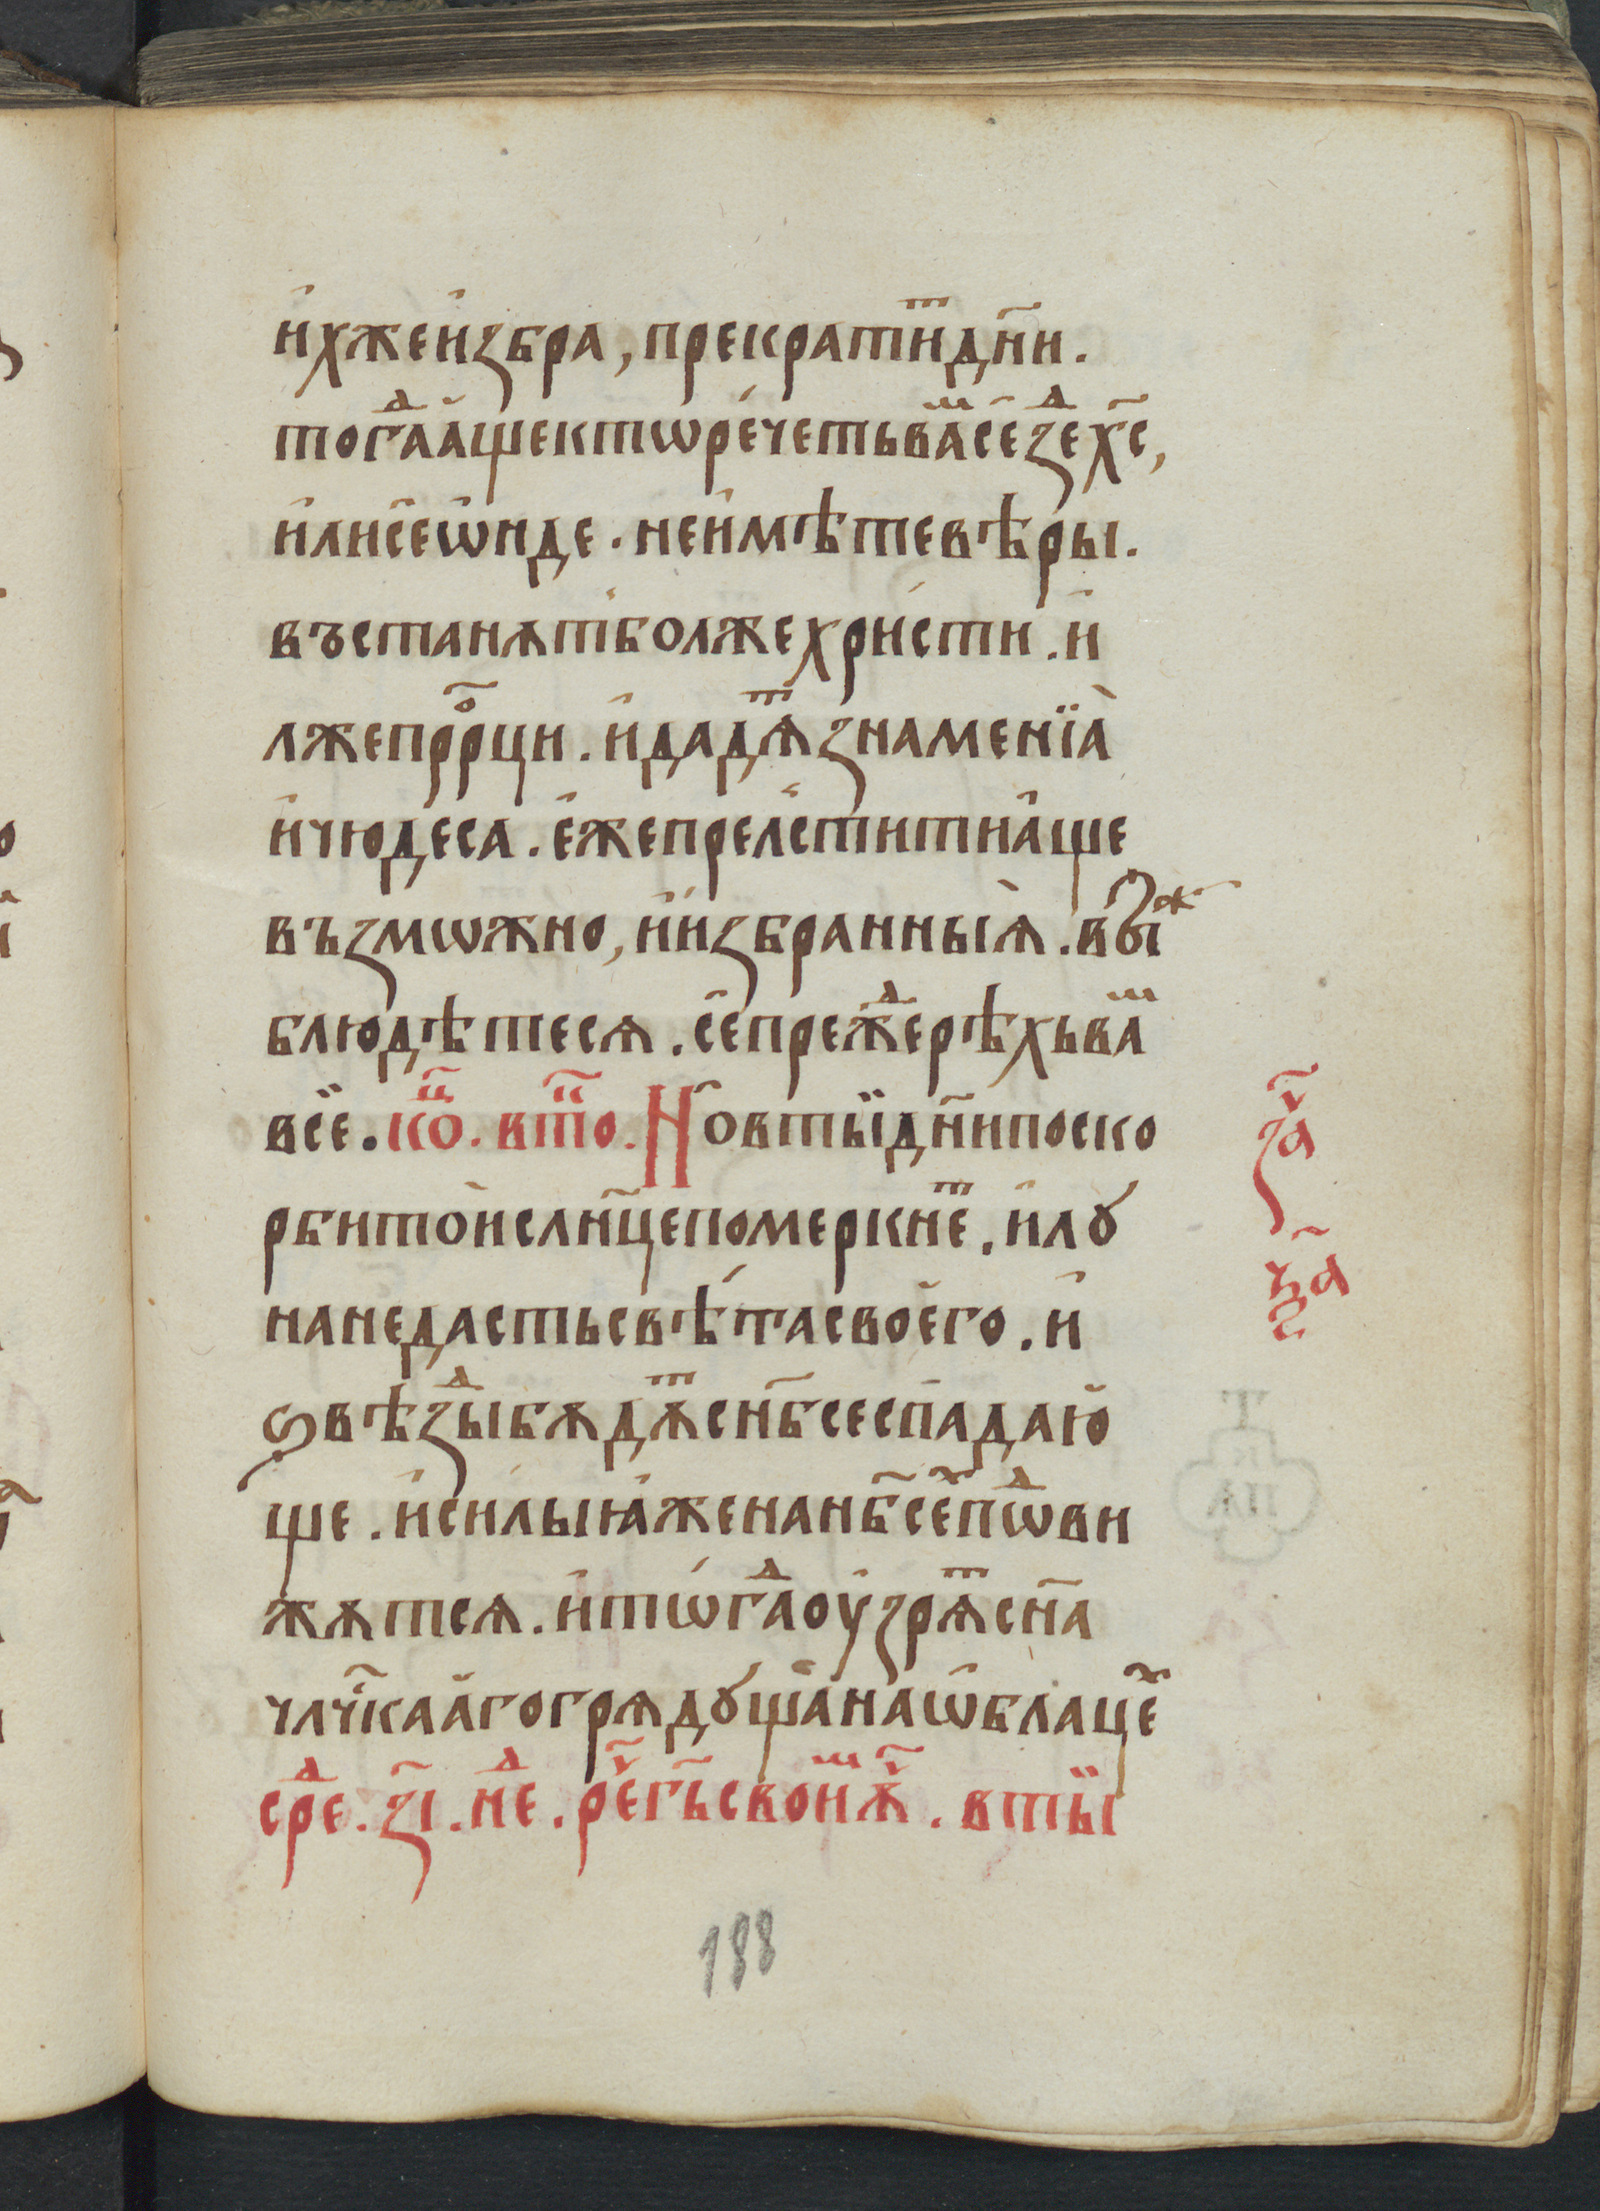 и҆хжеи҆збра, прекратиⷮдн҃и.
тогаⷣа҆щектѡре́четьваⷨсе҆зеⷣхс҃,
и҆лисе҆ѡ҆нде. неи҆мѣтевѣры.
въстанѫтболжехри́сти. и҆
лжепрⷪ҇рци. и҆дадѧⷮзнаменїа̀
и҆чюдеса. е҆жепреле́стити́аще
възмѡжно, и҆и҆збранныѧ̀. выⷤ
блюдѣтесѧ. се҆преⷤⷣерѣхъваⷨ
всё. коⷰ҇. втоⷬ҇. Новтыїдн҃ипоско
рбито̀и҆слн҃цепомеркнеⷮ. и҆лꙋ
нанедастьсвѣ́тасвоего. и҆
ѕвѣзⷣыбѫдѫⷮснб҃сеспа́даю
ще. и҆силыꙗ҆женанб҃сеⷯпоⷣви
жѫтсѧ. и҆тѡгаⷣоу҆зрѧⷮсн҃а
члч҃каа҆гогрѧдꙋща̀наѡ҆блацеⷯ
среⷣ. зі҃. неⷣ. реⷱ҇гь҃своиⷨѫⷱ҇. втыї
заⷱ҇
рг҃а
188